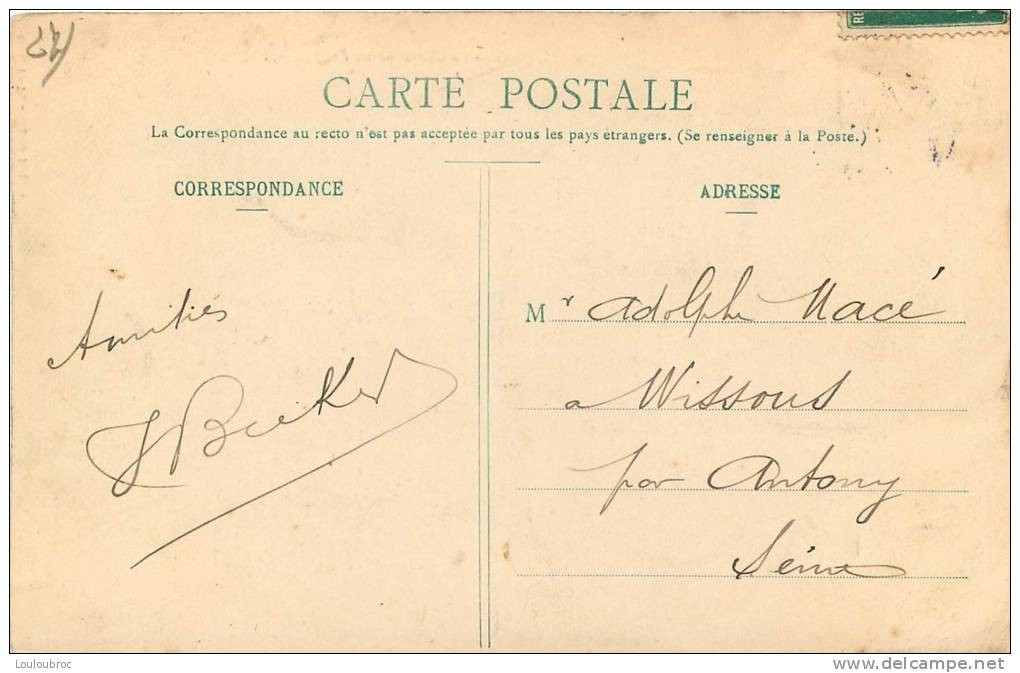 CARTE POSTALE
La Correspondance au recto n'est pas acceptée par tous les pays étrangers. (Se renseigner à la Poste.)
CORRESPONDANCE
Amitiés
ADRESSE
Mr Adolphe Macé
a Wissous
par Antony
Seine
Louloubroc
www.delcampe.net